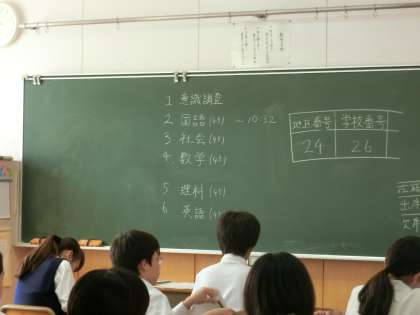 1 意識調査
2 国語(45) ～10:32
3 社会(45)
4 数学(45)
5 理科(45)
6 英語(45)
地区番号 学校番号
24 26